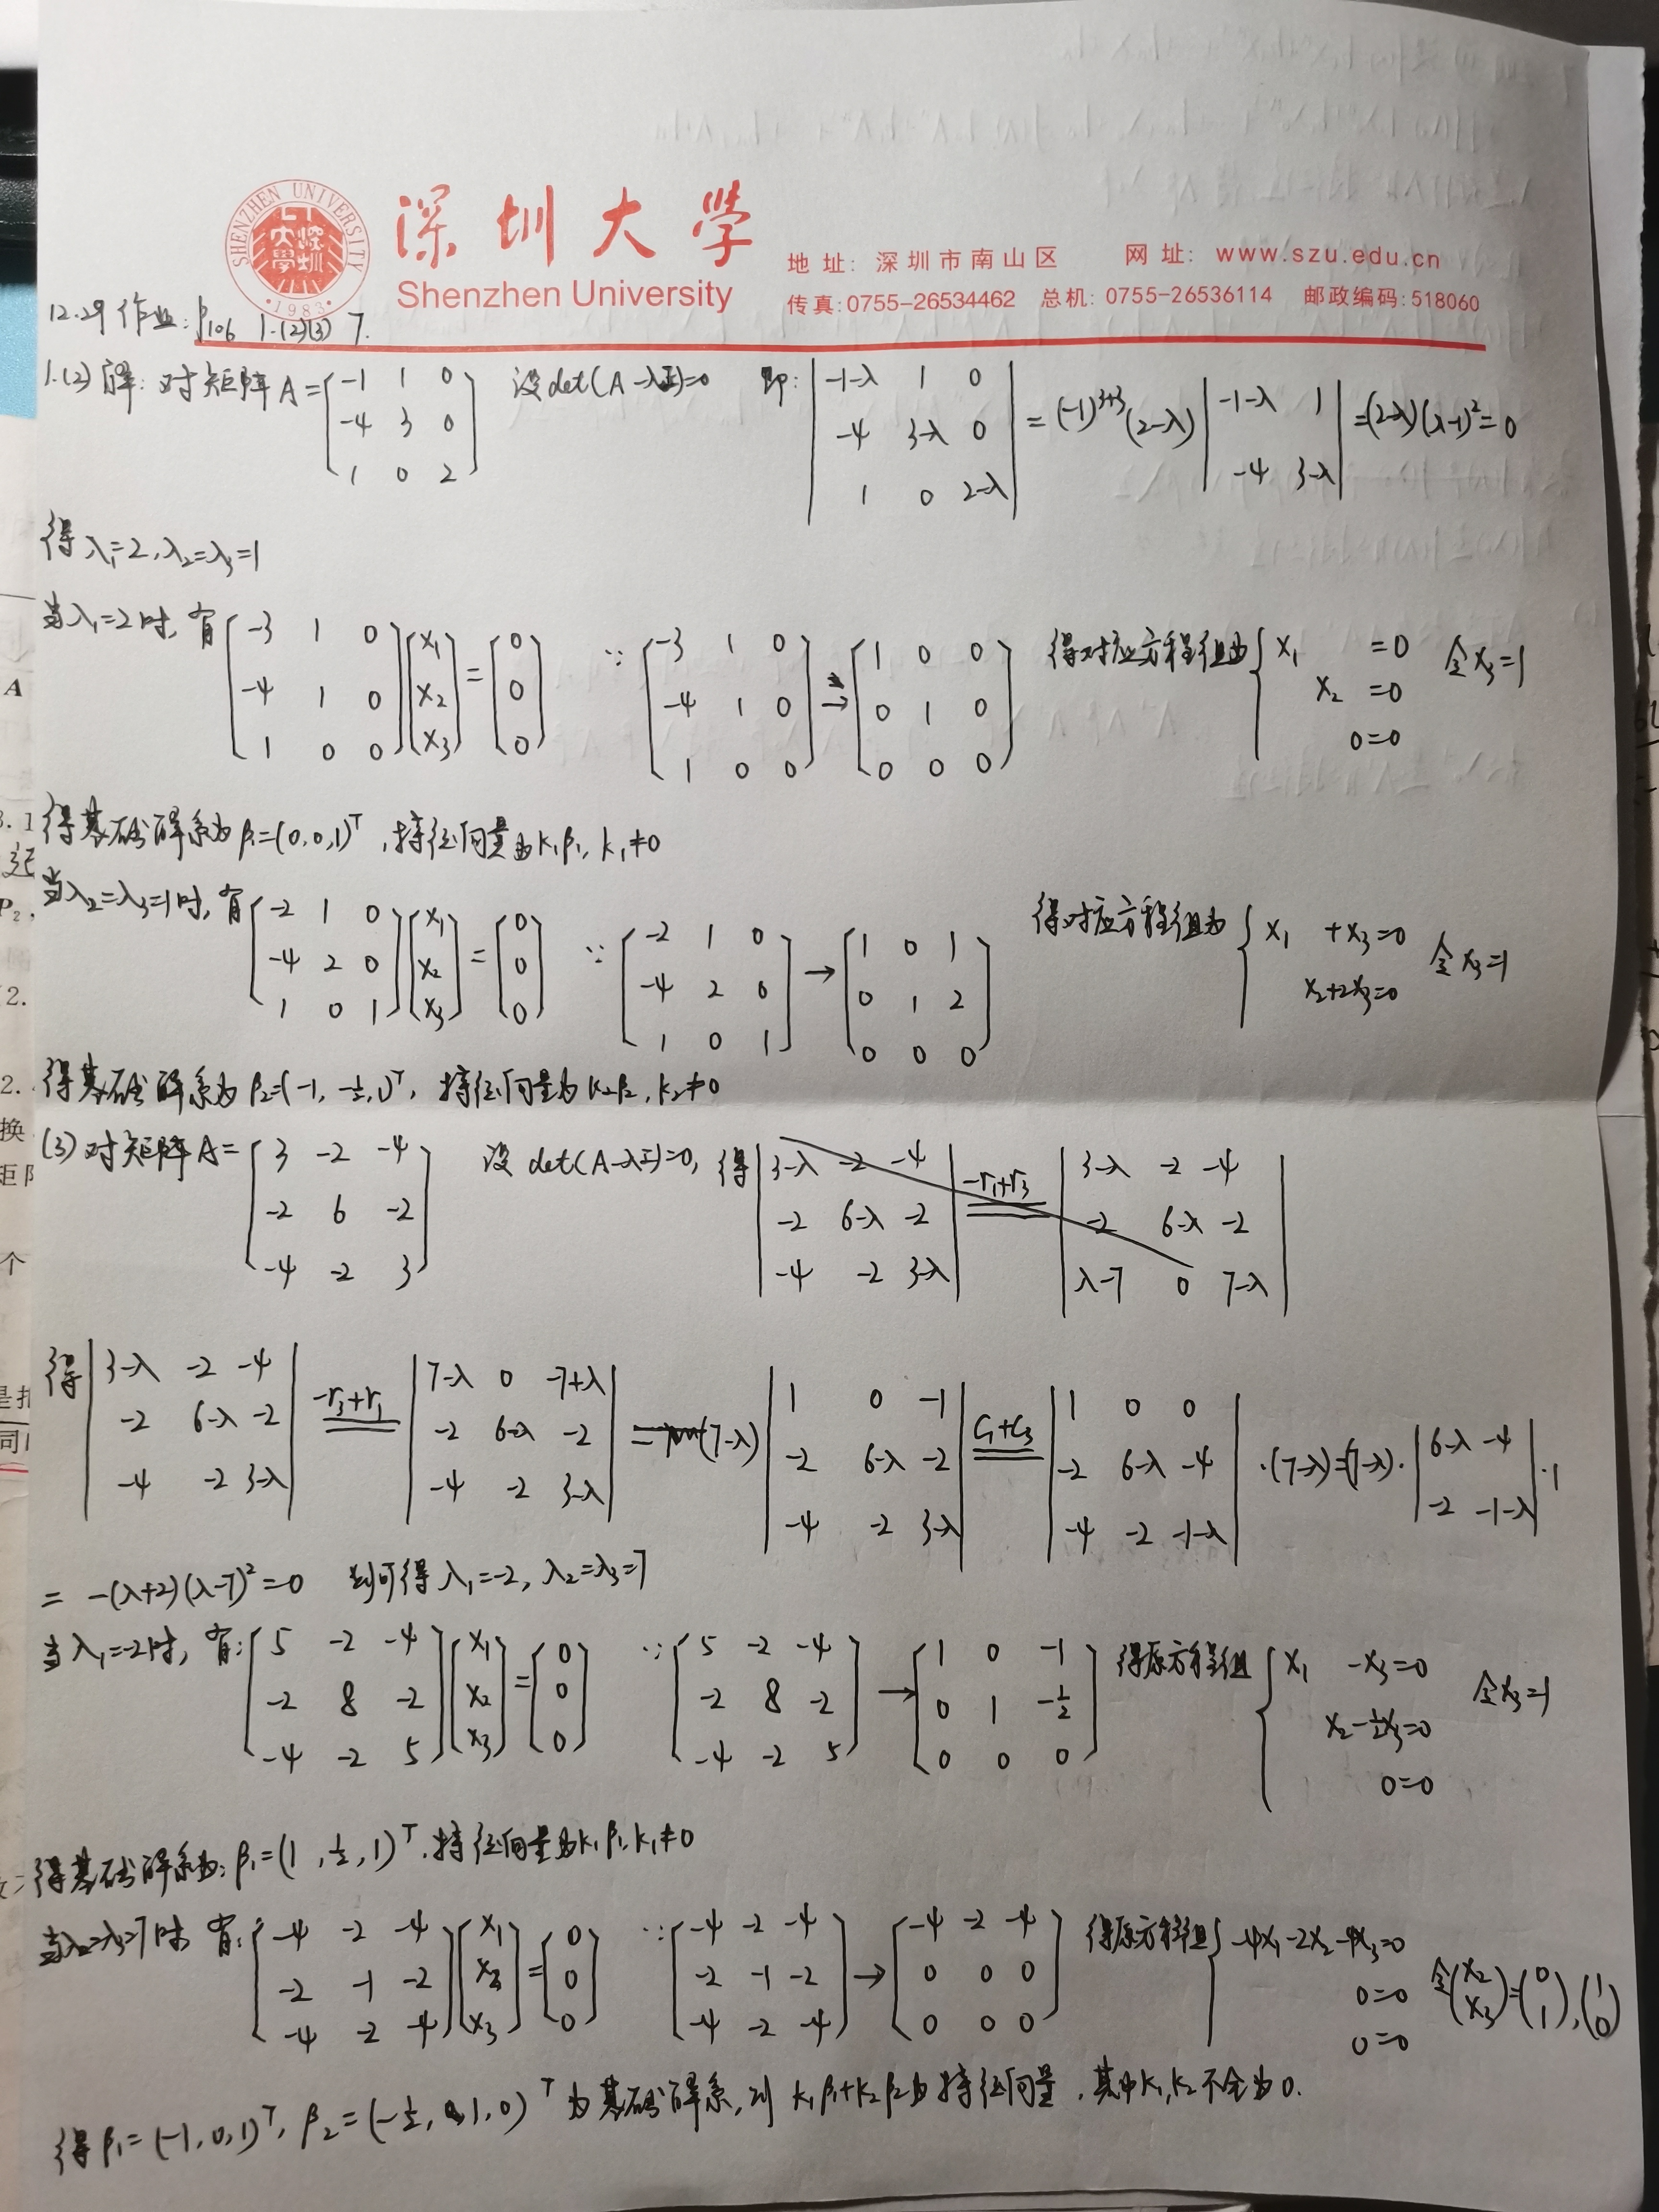 深圳大学
Shenzhen University
SHENZHEN UNIVERSITY
·1983·
地址: 深圳市南山区 网址: www.szu.edu.cn
传真:0755-26534462 总机: 0755-26536114 邮政编码:518060
12.29 作业: P106 1.(2)(3) 7.
1.(2) 解: 对矩阵 A=[-1 1 0; -4 3 0; 1 0 2] 设det(A-λI)=0 即: |-1-λ 1 0; -4 3-λ 0; 1 0 2-λ| = (-1)^{3+3}(2-λ)|-1-λ 1; -4 3-λ| =(2-λ)(λ-1)²=0
得 λ₁=2, λ₂=λ₃=1
当λ₁=2时, 有[-3 1 0; -4 1 0; 1 0 0][x₁; x₂; x₃]=[0; 0; 0] ∵ [-3 1 0; -4 1 0; 1 0 0]→[1 0 0; 0 1 0; 0 0 0] 得对应方程组为{x₁ =0; x₂ =0; 0=0 令x₃=1
得基础解系为 β₁=(0,0,1)ᵀ, 特征向量为k₁β₁, k₁≠0
当λ₂=λ₃=1时, 有[-2 1 0; -4 2 0; 1 0 1][x₁; x₂; x₃]=[0; 0; 0] ∵ [-2 1 0; -4 2 0; 1 0 1]→[1 0 1; 0 1 2; 0 0 0] 得对应方程组为{x₁ +x₃=0; x₂+2x₃=0 令x₃=1
得基础解系为 β₂=(-1, -½, 1)ᵀ, 特征向量为 k₂β₂, k₂≠0
(3) 对矩阵A=[3 -2 -4; -2 6 -2; -4 -2 3] 设 det(A-λI)=0, 得|3-λ -2 -4; -2 6-λ -2; -4 -2 3-λ| =(-r₁+r₃)= |3-λ -2 -4; -2 6-λ -2; λ-7 0 7-λ|
得|3-λ -2 -4; -2 6-λ -2; -4 -2 3-λ| =(-r₃+r₁)= |7-λ 0 -7+λ; -2 6-λ -2; -4 -2 3-λ| = (7-λ)|1 0 -1; -2 6-λ -2; -4 -2 3-λ| =(c₁+c₃)= |1 0 0; -2 6-λ -4; -4 -2 -1-λ| ·(7-λ)=(7-λ)·|6-λ -4; -2 -1-λ|·1
= -(λ+2)(λ-7)²=0 可得 λ₁=-2, λ₂=λ₃=7
当λ₁=-2时, 有:[5 -2 -4; -2 8 -2; -4 -2 5][x₁; x₂; x₃]=[0; 0; 0] ∵ [5 -2 -4; -2 8 -2; -4 -2 5]→[1 0 -1; 0 1 -½; 0 0 0] 得原方程组{x₁ -x₃=0; x₂-½x₃=0; 0=0 令x₃=1
得基础解系为: β₁=(1, ½, 1)ᵀ, 特征向量为k₁β₁, k₁≠0
当λ₂=λ₃=7时, 有:[-4 -2 -4; -2 -1 -2; -4 -2 -4][x₁; x₂; x₃]=[0; 0; 0] ∵ [-4 -2 -4; -2 -1 -2; -4 -2 -4]→[-4 -2 -4; 0 0 0; 0 0 0] 得原方程组{-4x₁-2x₂-4x₃=0; 0=0; 0=0 令(x₂; x₃)=(0; 1),(1; 0)
得 β₁=(-1,0,1)ᵀ, β₂=(-½, 1, 0)ᵀ 为基础解系, 则 k₁β₁+k₂β₂为特征向量, 其中k₁,k₂不全为0.